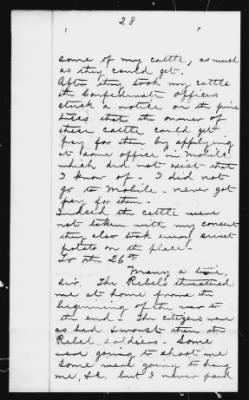 28
some of my cattle, as much
as they could get.
After they took my cattle
the Confederate officers
stuck a notice on the pine
trees that the owner of
these cattle could get
pay for them by applying
at some office in Mobile
which did not exist that
I know of. I did not
go to Mobile - never got
pay for them.
Indeed the cattle were
not taken with my consent
they also took away sweet
potato on the place.
To the 26th
Many a time,
sir, The Rebels threatened
me at home from the
beginning of the war to
the end. The citizens were
as bad & worse than the
Rebel soldiers. Some
were going to shoot me
Some were going to hang
me, &c. but I never paid